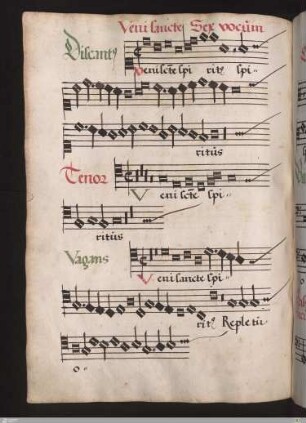 Veni sancte Sex vocum
Discantꝰ
Veni scte spi ritꝰ spi..
ritus
Tenor
Veni scte spi..
ritus
Vagans
Veni sancte spi..
ritꝰ Reple tu
o..